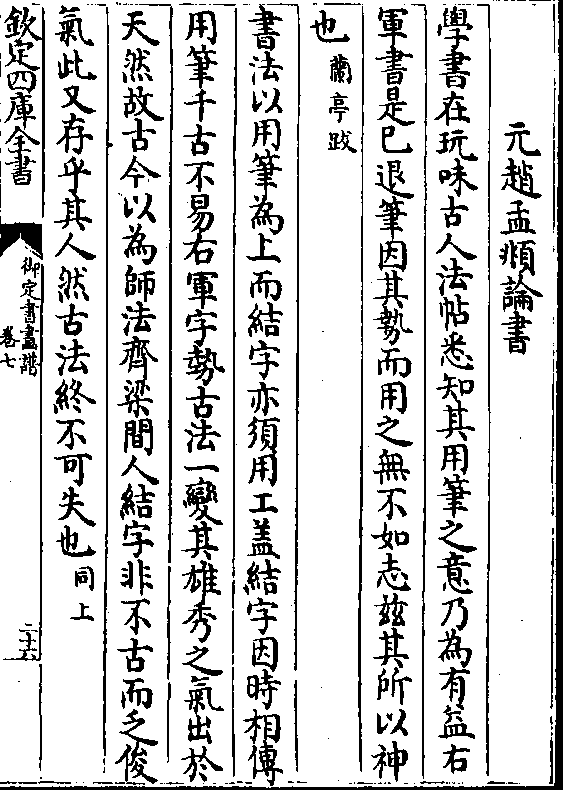 元趙孟頫論書
學書在玩味古人法帖悉知其用筆之意乃為有益右
軍書是已退筆因其勢而用之無不如志玆其所以神
也蘭亭跋
書法以用筆為上而結字亦須用工盖結字因時相傳
用筆千古不易右軍字勢古法一變其雄秀之氣出於
天然故古今以為師法齊梁間人結字非不古而乏俊
氣此又存乎其人然古法終不可失也同上
欽定四庫全書
御定書畫譜
卷七
二十六